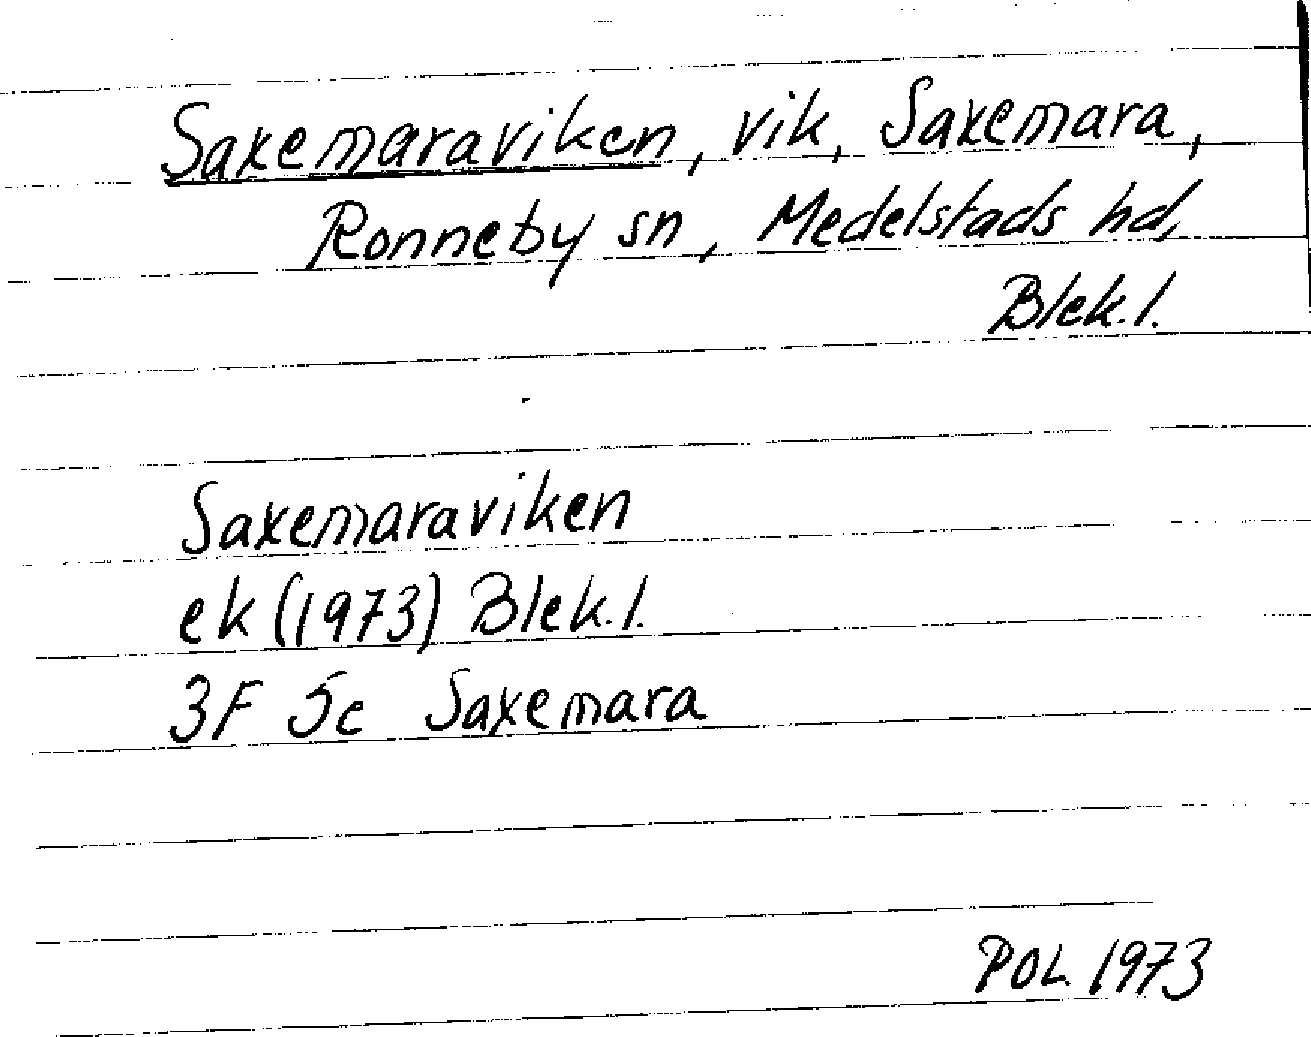 Saxemaraviken, vik, Saxemara,
Ronneby sn, Medelstads hd,
Blek. l.
Saxemaraviken
ek (1973) Blek. l.
3F 5c Saxemara
POL 1973